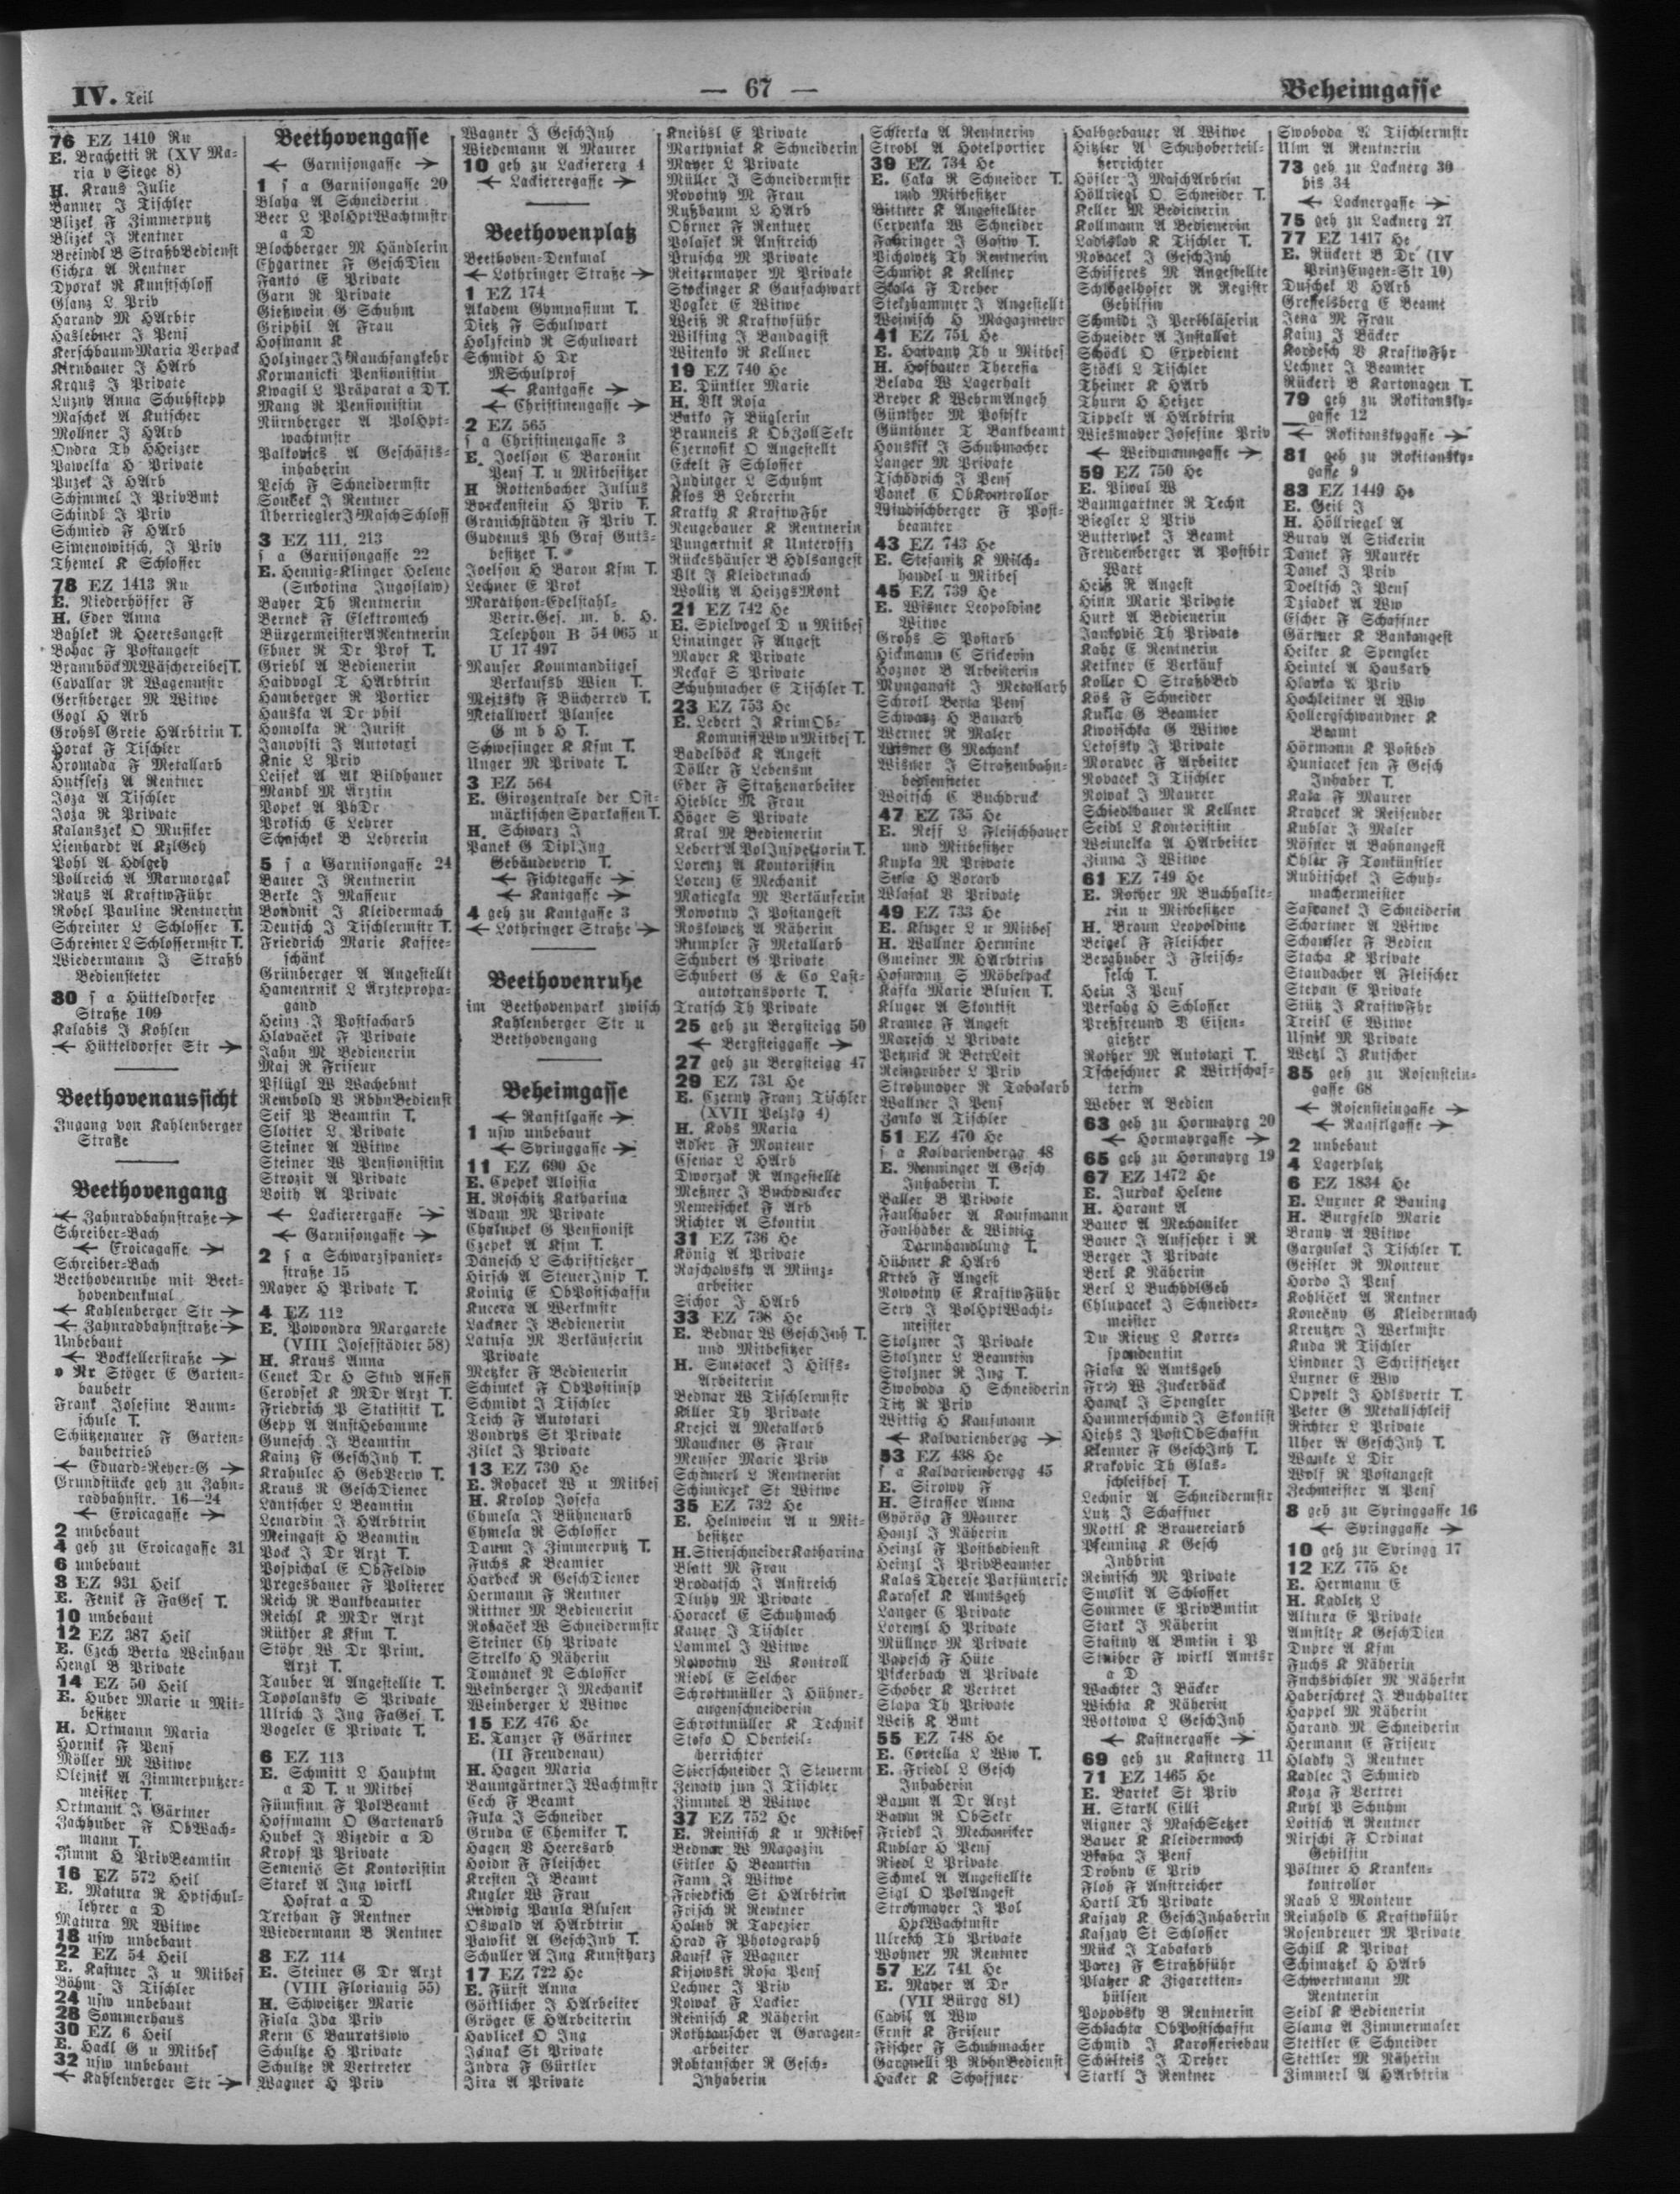 IV. Teil
— 67 —
Beheimgasse
76 EZ 1410 Ru
E. Brachetti R (XV Ma-
ria v Siege 8)
H. Kraus Julie
Banner J Tischler
Blizek F Zimmerputz
Blizek J Rentner
Breindl B StraßbBedienst
Cichra A Rentner
Dvorak R Kunstschloss
Glanz L Priv
Harand M HArbtr
Haslehner J Pens
Kerschbaum Maria Verpack
Kirnbauer J HArb
Kraus J Private
Luzny Anna Schuhstepp
Maschek A Kutscher
Mollner J HArb
Ondra Th HHeizer
Pawelka H Private
Puzek J HArb
Schimmel J PrivBmt
Schindl J Priv
Schmied F HArb
Simenowitsch, J Priv
Themel K Schlosser
78 EZ 1413 Ru
E. Niederhöffer F
H. Eder Anna
Bahlek R Heeresangest
Bohac F Postangest
Braunböck M Wäschereibes T.
Cavallar R Wagenmstr
Gerstberger M Witwe
Gogl H Arb
Grohsl Grete HArbtrin T.
Horak F Tischler
Hromada F Metallarb
Hutflesz A Rentner
Joza A Tischler
Joza R Private
Kalauszek O Musiker
Lienhardt A KzlGeh
Pohl A Hdlgeh
Pollreich A Marmorgal
Rays A KraftwFühr
Robel Pauline Rentnerin
Schreiner L Schlosser T.
Schreiner L Schlossermstr T.
Wiedermann J Straßb
Bediensteter
80 s a Hütteldorfer
Straße 109
Kalabis J Kohlen
← Hütteldorfer Str →
Beethovenaussicht
Zugang von Kahlenberger
Straße
Beethovengang
← Zahnradbahnstraße →
Schreiber-Bach
← Eroicagasse →
Schreiber-Bach
Beethovenruhe mit Beet-
hovendenkmal
← Kahlenberger Str →
← Zahnradbahnstraße →
Unbebaut
← Bockkellerstraße →
o Nr Stöger E Garten-
baubetr
Frank Josefine Baum-
schule T.
Schützenauer F Garten-
baubetrieb
← Eduard-Reyer-G →
Grundstücke geh zu Zahn-
radbahnstr. 16—24
← Eroicagasse →
2 unbebaut
4 geh zu Eroicagasse 31
6 unbebaut
8 EZ 931 Heil
E. Fenik F FaGes T.
10 unbebaut
12 EZ 387 Heil
E. Czech Berta Weinhau
Hengl B Private
14 EZ 50 Heil
E. Huber Marie u Mit-
besitzer
H. Ortmann Maria
Hornik F Pens
Möller M Witwe
Olejnik A Zimmerputzer-
meister T.
Ortmann J Gärtner
Zachhuber F ObWach-
mann T.
Zimm H PrivBeamtin
16 EZ 572 Heil
E. Matura R Hptschul-
lehrer a D
Matura M Witwe
18 usw unbebaut
22 EZ 54 Heil
E. Kastner J u Mitbes
Böhm J Tischler
24 usw unbebaut
28 Sommerhaus
30 EZ 6 Heil
E. Hackl G u Mitbes
32 usw unbebaut
← Kahlenberger Str →
Beethovengasse
← Garnisongasse →
1 s a Garnisongasse 20
Blaha A Schneiderin
Beer L PolHptWachtmstr
a D
Blochberger M Händlerin
Ehgartner F GeschDien
Fanto E Private
Garn R Private
Gießwein G Schuhm
Griphil A Frau
Hofmann K
Holzinger J Rauchfangkehr
Kormanicki Pensionistin
Kwagil L Präparat a D T.
Mang R Pensionistin
Nürnberger A PolHpt-
wachtmstr
Palkovics A Geschäfts-
inhaberin
Pesch F Schneidermstr
Soucek J Rentner
Überriegler J MaschSchloss
3 EZ 111, 213
s a Garnisongasse 22
E. Hennig-Klinger Helene
(Subotina Jugoslaw)
Bayer Th Rentnerin
Bernet F Elektromech
Bürgermeister A Rentnerin
Ebner R Dr Prof T.
Griebl A Bedienerin
Haidvogl T HArbtrin
Hamberger R Portier
Hauska A Dr phil
Homolka R Jurist
Janovski J Autotaxi
Knie L Priv
Leisek A Ak Bildhauer
Mandl M Ärztin
Popek A PhDr
Proksch E Lehrer
Schaschek B Lehrerin
5 s a Garnisongasse 24
Bauer J Rentnerin
Berke J Masseur
Bondnik J Kleidermach
Deutsch J Tischlermstr T.
Friedrich Marie Kaffee-
schänk
Grünberger A Angestellt
Hamenrnik L Ärztepropa-
gand
Heinz J Postfacharb
Hlavaček F Private
Jahn M Bedienerin
Maj R Friseur
Pflügl W Wachebmt
Reimbold V RbhnBedienst
Seif P Beamtin T.
Slotier L Private
Steiner A Witwe
Steiner W Pensionistin
Strozit A Private
Voith A Private
← Lackierergasse →
← Garnisongasse →
2 s a Schwarzspanier-
straße 15
Mayer H Private T.
4 EZ 112
E. Powondra Margarete
(VIII Josefstädter 58)
H. Kraus Anna
Cenek Dr H Stud Assess
Cerovsek K MDr Arzt T.
Friedrich P Statistik T.
Gepp A AnstHebamme
Gunesch J Beamtin
Kainz F GeschInh T.
Krahulec H GebVerw T.
Kraus R GeschDiener
Lantscher L Beamtin
Lenardin J HArbtrin
Meingast H Beamtin
Pock J Dr Arzt T.
Pospichal E ObFeldw
Pregesbauer F Polierer
Reich R Bankbeamter
Reichl K MDr Arzt
Rüther K Kfm T.
Stöhr W Dr Prim.
Arzt T.
Tauber A Angestellte T.
Topolansky S Private
Ulrich J Ing FaGes T.
Vogeler E Private T.
6 EZ 113
E. Schmitt L Hauptm
a D T. u Mitbes
Fümfinn F PolBeamt
Hoffmann O Gartenarb
Hubek J Vizedir a D
Kropf P Private
Semenič St Kontoristin
Starek A Ing wirkl
Hofrat a D
Trethan F Rentner
Wiedermann B Rentner
8 EZ 114
E. Steiner G Dr Arzt
(VIII Florianig 55)
H. Schweitzer Marie
Fiala Ida Priv
Kern C Bauratsww
Schultze H Private
Schultze R Vertreter
Wagner H Priv
Wagner J GeschInh
Wiedemann A Maurer
10 geh zu Lackiererg 4
← Lackierergasse →
Beethovenplatz
Beethoven-Denkmal
← Lothringer Straße →
1 EZ 174
Akadem Gymnasium T.
Dietz F Schulwart
Holzfeind R Schulwart
Schmidt H Dr
MSchulprof
← Kantgasse →
← Christinengasse →
2 EZ 565
s a Christinengasse 3
E. Joelson C Baronin
Pens T. u Mitbesitzer
H Rottenbacher Julius
Bockenstein H Priv T.
Granichstädten F Priv T.
Gudenus Ph Graf Guts-
besitzer T.
Joelson H Baron Kfm T.
Lechner E Prok
Marathon-Edelstahl-
Vertr.Ges. m. b. H.
Telephon B 54 065 u
U 17 497
Mauser Kommanditges
Verkaufsb Wien T.
Mejtsky F Bücherrev T.
Metallwerk Plansee
G m b H T.
Schwesinger K Kfm T.
Unger M Private T.
3 EZ 564
E. Girozentrale der Ost-
märkischen Sparkassen T.
H. Schwarz J
Panek G DiplIng
Gebäudeverw T.
← Fichtegasse →
← Kantgasse →
4 geh zu Kantgasse 3
← Lothringer Straße →
Beethovenruhe
im Beethovenpark zwisch
Kahlenberger Str u
Beethovengang
Beheimgasse
← Ranftlgasse →
1 usw unbebaut
← Syringgasse →
11 EZ 690 He
E. Cpepek Aloisia
H. Roschitz Katharina
Adam M Private
Chalupek G Pensionist
Czepek A Kfm T.
Danesch L Schriftsetzer
Hirsch A SteuerInsp T.
Koinig E ObPostschaffn
Kucera A Werkmstr
Lackner J Bedienerin
Latusa M Verkäuferin
Private
Metzker F Bedienerin
Schimek F ObPostinsp
Schmidt J Tischler
Teich F Autotaxi
Vondrys St Private
Zilek J Private
13 EZ 730 He
E. Rohacek W u Mitbes
H. Krolop Josefa
Chmela J Bühnenarb
Chmela R Schlosser
Daum J Zimmerputz T.
Fuchs K Beamter
Harbeck R GeschDiener
Hermann F Rentner
Rittner M Bedienerin
Robaček W Schneidermstr
Steiner Ch Private
Strelko H Näherin
Tomanek R Schlosser
Weinberger J Mechanik
Weinberger L Witwe
15 EZ 476 He
E. Tanzer F Gärtner
(II Freudenau)
H. Hagen Maria
Baumgärtner J Wachtmstr
Cech F Beamt
Fuka J Schneider
Gruda E Chemiker T.
Hagen V Heeresarb
Hoidn F Fleischer
Kresten J Beamt
Kugler W Frau
Ludwig Paula Blusen
Oswald A HArbtrin
Pawlik A GeschInh T.
Schuller A Ing Kunstharz
17 EZ 722 He
E. Fürst Anna
Göttlicher J HArbeiter
Gröger E HArbeiterin
Havlicek O Ing
Janak St Private
Indra F Gürtler
Jira A Private
Kneihsl E Private
Martyniak K Schneiderin
Mayer L Private
Müller J Schneidermstr
Novotny M Frau
Nußbaum L HArb
Ohrner F Rentner
Polasek R Anstreich
Pruscha M Private
Reitermayer M Private
Stockinger K Gaufachwart
Vogler E Witwe
Weiß R Kraftwführ
Wilfing J Bandagist
Witenko R Kellner
19 EZ 740 He
E. Dünkler Marie
H. Vlk Rosa
Batko F Büglerin
Brauneis K ObZollSekr
Czernosik O Angestellt
Eckelt F Schlosser
Indinger L Schuhm
Klos B Lehrerin
Kratky K KraftwFhr
Neugebauer K Rentnerin
Pungartnik K Unteroffz
Rückeshäuser B Hdlsangest
Vlk J Kleidermach
Wollitz A HeizgsMont
21 EZ 742 He
E. Spielvogel D u Mitbes
Lininger F Angest
Mayer K Private
Neckař S Private
Schuhmacher E Tischler T.
23 EZ 753 He
E. Lebert J KrimOb-
KommissWw u Mitbes T.
Badelböck K Angest
Döller F Lebensm
Eder F Straßenarbeiter
Hiebler M Frau
Höger S Private
Kral M Bedienerin
Lebert A PolInspektorin T.
Lorenz A Kontoristin
Lorenz E Mechanik
Matiegka M Verkäuferin
Nowotny J Postangest
Roskowetz A Näherin
Rumpler F Metallarb
Schubert G Private
Schubert G & Co Last-
autotransporte T.
Tratsch Th Private
25 geh zu Bergsteigg 50
← Bergsteiggasse →
27 geh zu Bergsteigg 47
29 EZ 731 He
E. Czerny Franz Tischler
(XVII Pelzlg 4)
H. Kohs Maria
Adler F Monteur
Csenar L HArb
Dworzak R Angestellt
Meßner J Buchdrucker
Nemetschek F Arb
Richter A Skontin
31 EZ 736 He
König A Private
Raschowsky A Münz-
arbeiter
Sichor J HArb
33 EZ 738 He
E. Bednar W GeschInh T.
und Mitbesitzer
H. Smetacek J Hilfs-
Arbeiterin
Bednar W Tischlermstr
Killer Th Private
Krejci A Metallarb
Mauckner G Frau
Menser Marie Priv
Schimerl L Rentnerin
Schimiczek St Witwe
35 EZ 732 He
E. Helnwein A u Mit-
besitzer
H. Stierschneider Katharina
Blatt M Frau
Brodatsch J Anstreich
Dluhy M Private
Horacek E Schuhmach
Kauer J Tischler
Lammel J Witwe
Nowotny W Kontroll
Riedl E Selcher
Schrottmüller J Hühner-
augenschneiderin
Schrottmüller K Technik
Stoso O Oberteil-
herrichter
Stierschneider J Steuerm
Zenaty jun J Tischler
Zimmel B Witwe
37 EZ 752 He
E. Reinisch K u Mitbes
Bednar W Magazin
Eitler H Beamtin
Fann J Witwe
Friedrich St HArbtrin
Frisch R Rentner
Holub R Tapezier
Hrad F Photograph
Kausk F Wagner
Kisowski Rosa Pens
Lechner J Priv
Nowak F Lackier
Reinisch K Näherin
Rothtauscher A Garagen-
arbeiter
Rohtauscher R Gesch-
Inhaberin
Schterka A Rentnerin
Strobl A Hotelportier
39 EZ 734 He
E. Caka R Schneider T.
und Mitbesitzer
Bittner K Angestellter
Cervenka W Schneider
Fahringer J Gastw T.
Pichowetz Th Rentnerin
Schmidt K Kellner
Skola F Dreher
Stelzhammer J Angestellt
Woinisch H Magazineur
41 EZ 751 He
E. Hatvany Th u Mitbes
H. Hofbauer Theresia
Belada W Lagerhalt
Breyer K WehrmAngeh
Günther M Postfkr
Günthner T Bankbeamt
Houskik J Schuhmacher
Langer M Private
Tschödrich J Pens
Vanek C ObKontrollor
Windischberger F Post-
beamter
43 EZ 743 He
E. Stefanitz K Milch-
handel u Mitbes
45 EZ 739 He
E. Wisner Leopoldine
Witwe
Grohs S Postarb
Hickmann C Stickerin
Hoznor B Arbeiterin
Munganast J Metallarb
Schrott Berta Pens
Schwarz H Bauarb
Werner R Maler
Wisner G Mechank
Wisner J Straßenbahn-
bediensteter
Woitsch C Buchdruck
47 EZ 735 He
E. Neff L Fleischhauer
und Mitbesitzer
Kupka M Private
Sirla H Vorarb
Wlasak V Private
49 EZ 733 He
E. Kluger L u Mitbes
H. Wallner Hermine
Gmeiner M HArbtrin
Hofmann S Möbelpack
Kafka Marie Blusen T.
Kluger A Skontist
Kramer F Angest
Maresch L Private
Petznick R BetrLeit
Reingruber L Priv
Strohmayer R Tabakarb
Wallner J Pens
Zanko A Tischler
51 EZ 470 He
s a Kalvarienbergg 48
E. Renninger A Gesch
Inhaberin T.
Baller B Private
Faulhaber A Kaufmann
Faulhaber & Wittig
Darmhandlung T.
Hübner K HArb
Krteb F Angest
Nowotny E KraftwFühr
Serv J PolHptWacht-
meister
Stolzner J Private
Stolzner L Beamtin
Stolzner R Ing T.
Swoboda H Schneiderin
Titz R Priv
Wittig H Kaufmann
← Kalvarienbergg →
53 EZ 438 He
s a Kalvarienbergg 45
E. Sirowy F
H. Strasser Anna
Györög F Maurer
Hanzl J Näherin
Heinzl F Postbedienst
Heinzl J PrivBeamter
Kalas Therese Parfümerie
Karasek K Amtsgeh
Langer C Private
Lorenzl H Private
Müllner M Private
Papesch F Hüte
Pickerbach A Private
Schober K Vertret
Slapa Th Private
Weiß K Bmt
55 EZ 748 He
E. Cortella L Ww T.
E. Friedl L Gesch
Inhaberin
Baum A Dr Arzt
Baum R ObSekr
Friedl J Mechaniker
Kublar H Pens
Riedl L Private
Schmel A Angestellte
Sigl O PolAngest
Strohmayer J Pol
HptWachtmstr
Ulreich Th Private
Wohner M Rentner
57 EZ 741 He
E. Mayer A Dr
(VII Bürgg 81)
Cadil A Ww
Ernst K Friseur
Fischer F Schuhmacher
Gargnelli P RbhnBedienst
Hacker K Schaffner
Halbgebauer A Witwe
Hitzler A Schuhoberteil-
herrichter
Höfler J MaschArbrin
Höllriegl O Schneider T.
Keller M Bedienerin
Kollmann A Bedienerin
Ladislav K Tischler T.
Novacek J GeschInh
Schifferes M Angestellte
Schlögelhofer R Registr
Gehilfin
Schmidt J Perlbläserin
Schneider A Installat
Schöckl O Expedient
Stöckl L Tischler
Theiner K HArb
Thurn H Heizer
Tippelt A HArbtrin
Wiesmayer Josefine Priv
← Weidmanngasse →
59 EZ 750 He
E. Piwal W
Baumgartner R Techn
Biegler L Priv
Butterwek J Beamt
Freudenberger A Postbtr
Wart
Heiß R Angest
Hinn Marie Private
Hurt A Bedienerin
Jankovič Th Private
Kahr E Rentnerin
Kettner E Verkäuf
Koller O StraßbBed
Kös F Schneider
Kukla G Beamter
Kwotschka G Witwe
Letofsky J Private
Moravec F Arbeiter
Novacek J Tischler
Nowak J Maurer
Schiedlbauer R Kellner
Seidl L Kontoristin
Woimelka A HArbeiter
Zinna J Witwe
61 EZ 749 He
E. Rother M Buchhalte-
rin u Mitbesitzer
H. Braun Leopoldine
Beigel F Fleischer
Berghuber J Fleisch-
selch T.
Hein J Pens
Persahg H Schlosser
Preßfreund V Eisen-
gießer
Rother M Autotaxi T.
Tscheschner K Wirtschaf-
terin
Weber A Bedien
63 geh zu Hormayrg 20
← Hormayrgasse →
65 geh zu Hormayrg 19
67 EZ 1472 He
E. Jurdak Helene
H. Harant A
Bauer A Mechaniker
Bauer J Aufseher i R
Berger J Private
Berl K Näherin
Berl L BuchhdlGeh
Chlupacek J Schneider-
meister
Du Rieux L Korre-
spondentin
Fiala K Amtsgeh
Frey W Zuckerbäck
Hanak J Spengler
Hammerschmid J Skontist
Hiehs J PostObSchaffn
Klenner F GeschInh T.
Krakovic Th Glas-
schleifbes T.
Lechnir A Schneidermstr
Lutz J Schaffner
Mottl K Brauereiarb
Pfenning K Gesch
Inhbrin
Reinisch M Private
Smolik A Schlosser
Sommer E PrivBmtin
Stark J Näherin
Stastny A Bmtin i P
Stuiber F wirkl Amtsr
a D
Wachter J Bäcker
Wichta K Näherin
Wottowa L GeschInh
← Kastnergasse →
69 geh zu Kastnerg 11
71 EZ 1465 He
E. Bartek St Priv
H. Starkl Cilli
Aigner J MaschSetzer
Bauer K Kleidermach
Blaha J Pens
Drobny E Priv
Floh F Anstreicher
Hartl Th Private
Kaszay K GeschInhaberin
Kaszay St Schlosser
Mück J Tabakarb
Parez F Straßbführ
Platzer K Zigaretten-
hülsen
Popovsky B Rentnerin
Schlachta ObPostschaffn
Schmid J Karosseriebau
Schülteis J Dreher
Starkl J Rentner
Swoboda A Tischlermstr
Ulm A Rentnerin
73 geh zu Lacknerg 30
bis 34
← Lacknergasse →
75 geh zu Lacknerg 27
77 EZ 1417 He
E. Rückert B Dr (IV
PrinzEugen-Str 10)
Duschek V HArb
Greffelsberg E Beamt
Jena M Frau
Kainz J Bäcker
Kordesch V KraftwFhr
Lechner J Beamter
Rückert B Kartonagen T.
79 geh zu Rokitansky-
gasse 12
← Rokitanskygasse →
81 geh zu Rokitansky-
gasse 9
83 EZ 1449 He
E. Geit J
H. Höllriegel A
Buray A Stickerin
Danek F Maurer
Danek J Priv
Doeltsch J Pens
Dziadek A Ww
Escher F Schaffner
Gärtner K Bankangest
Heiker K Spengler
Heintel A Hausarb
Hlavka A Priv
Hochleitner A Ww
Hollergschwandner K
Beamt
Hörmann K Postbed
Huniacek sen F Gesch
Inhaber T.
Kala F Maurer
Kratzek R Reisender
Kublar J Maler
Nösner A Bahnangest
Öhler F Tonkünstler
Rubitschek J Schuh-
machermeister
Safranek J Schneiderin
Schartner A Witwe
Schaufler F Bedien
Stacha K Private
Standacher A Fleischer
Stepan E Private
Stütz J KraftwFhr
Treitl E Witwe
Usnik M Private
Wetzl J Kutscher
85 geh zu Rosenstein-
gasse 68
← Rosensteingasse →
← Ranftlgasse →
2 unbebaut
4 Lagerplatz
6 EZ 1834 He
E. Luxner K Bauing
H. Burgfeld Marie
Brany A Witwe
Gargulak J Tischler T.
Geisler R Monteur
Hordo J Pens
Kohliček A Rentner
Konečny G Kleidermach
Kreutzer J Werkmstr
Kuda R Tischler
Lindner J Schriftsetzer
Luxner E Ww
Oppelt J Hdlsvertr T.
Peter G Metallschleif
Richter L Private
Uher K GeschInh T.
Wanke L Dir
Wolf R Postangest
Zechmeister A Pens
8 geh zu Syringgasse 16
← Syringgasse →
10 geh zu Syringg 17
12 EZ 775 He
E. Hermann E
H. Kadletz L
Altura E Private
Amstler K GeschDien
Dupre A Kfm
Fuchs K Näherin
Fuchsbichler M Näherin
Haberschrek J Buchhalter
Happel M Näherin
Harand M Schneiderin
Hermann E Friseur
Hladky J Rentner
Kadlec J Schmied
Koza F Vertret
Kuhl P Schuhm
Loitsch A Rentner
Nirschi F Ordinat
Gehilfin
Pöltner H Kranken-
kontrollor
Raab L Monteur
Reinhold C Kraftwführ
Rosenbreuer M Private
Schill K Privat
Schimatzek H HArb
Schwertmann M
Rentnerin
Seidl K Bedienerin
Slama A Zimmermaler
Stettler E Schneider
Stettler M Näherin
Zimmerl A HArbtrin